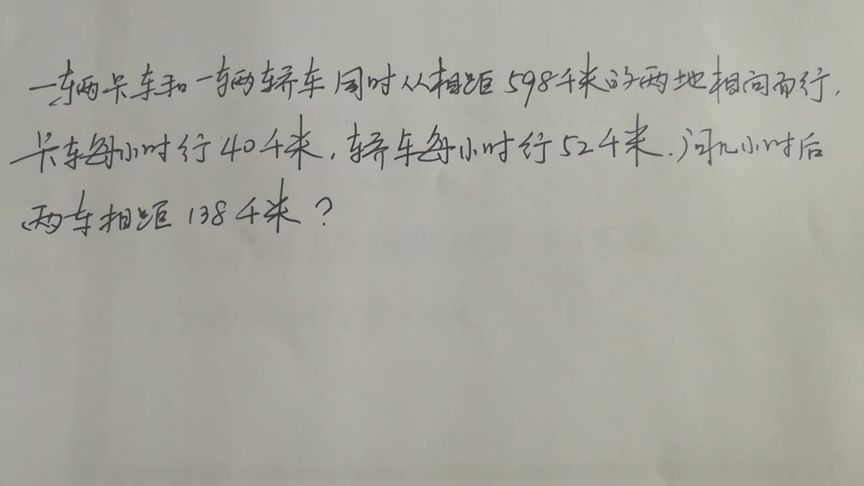 一辆卡车和一辆轿车同时从相距598千米的两地相向而行,
卡车每小时行40千米,轿车每小时行52千米.问几小时后
两车相距138千米?